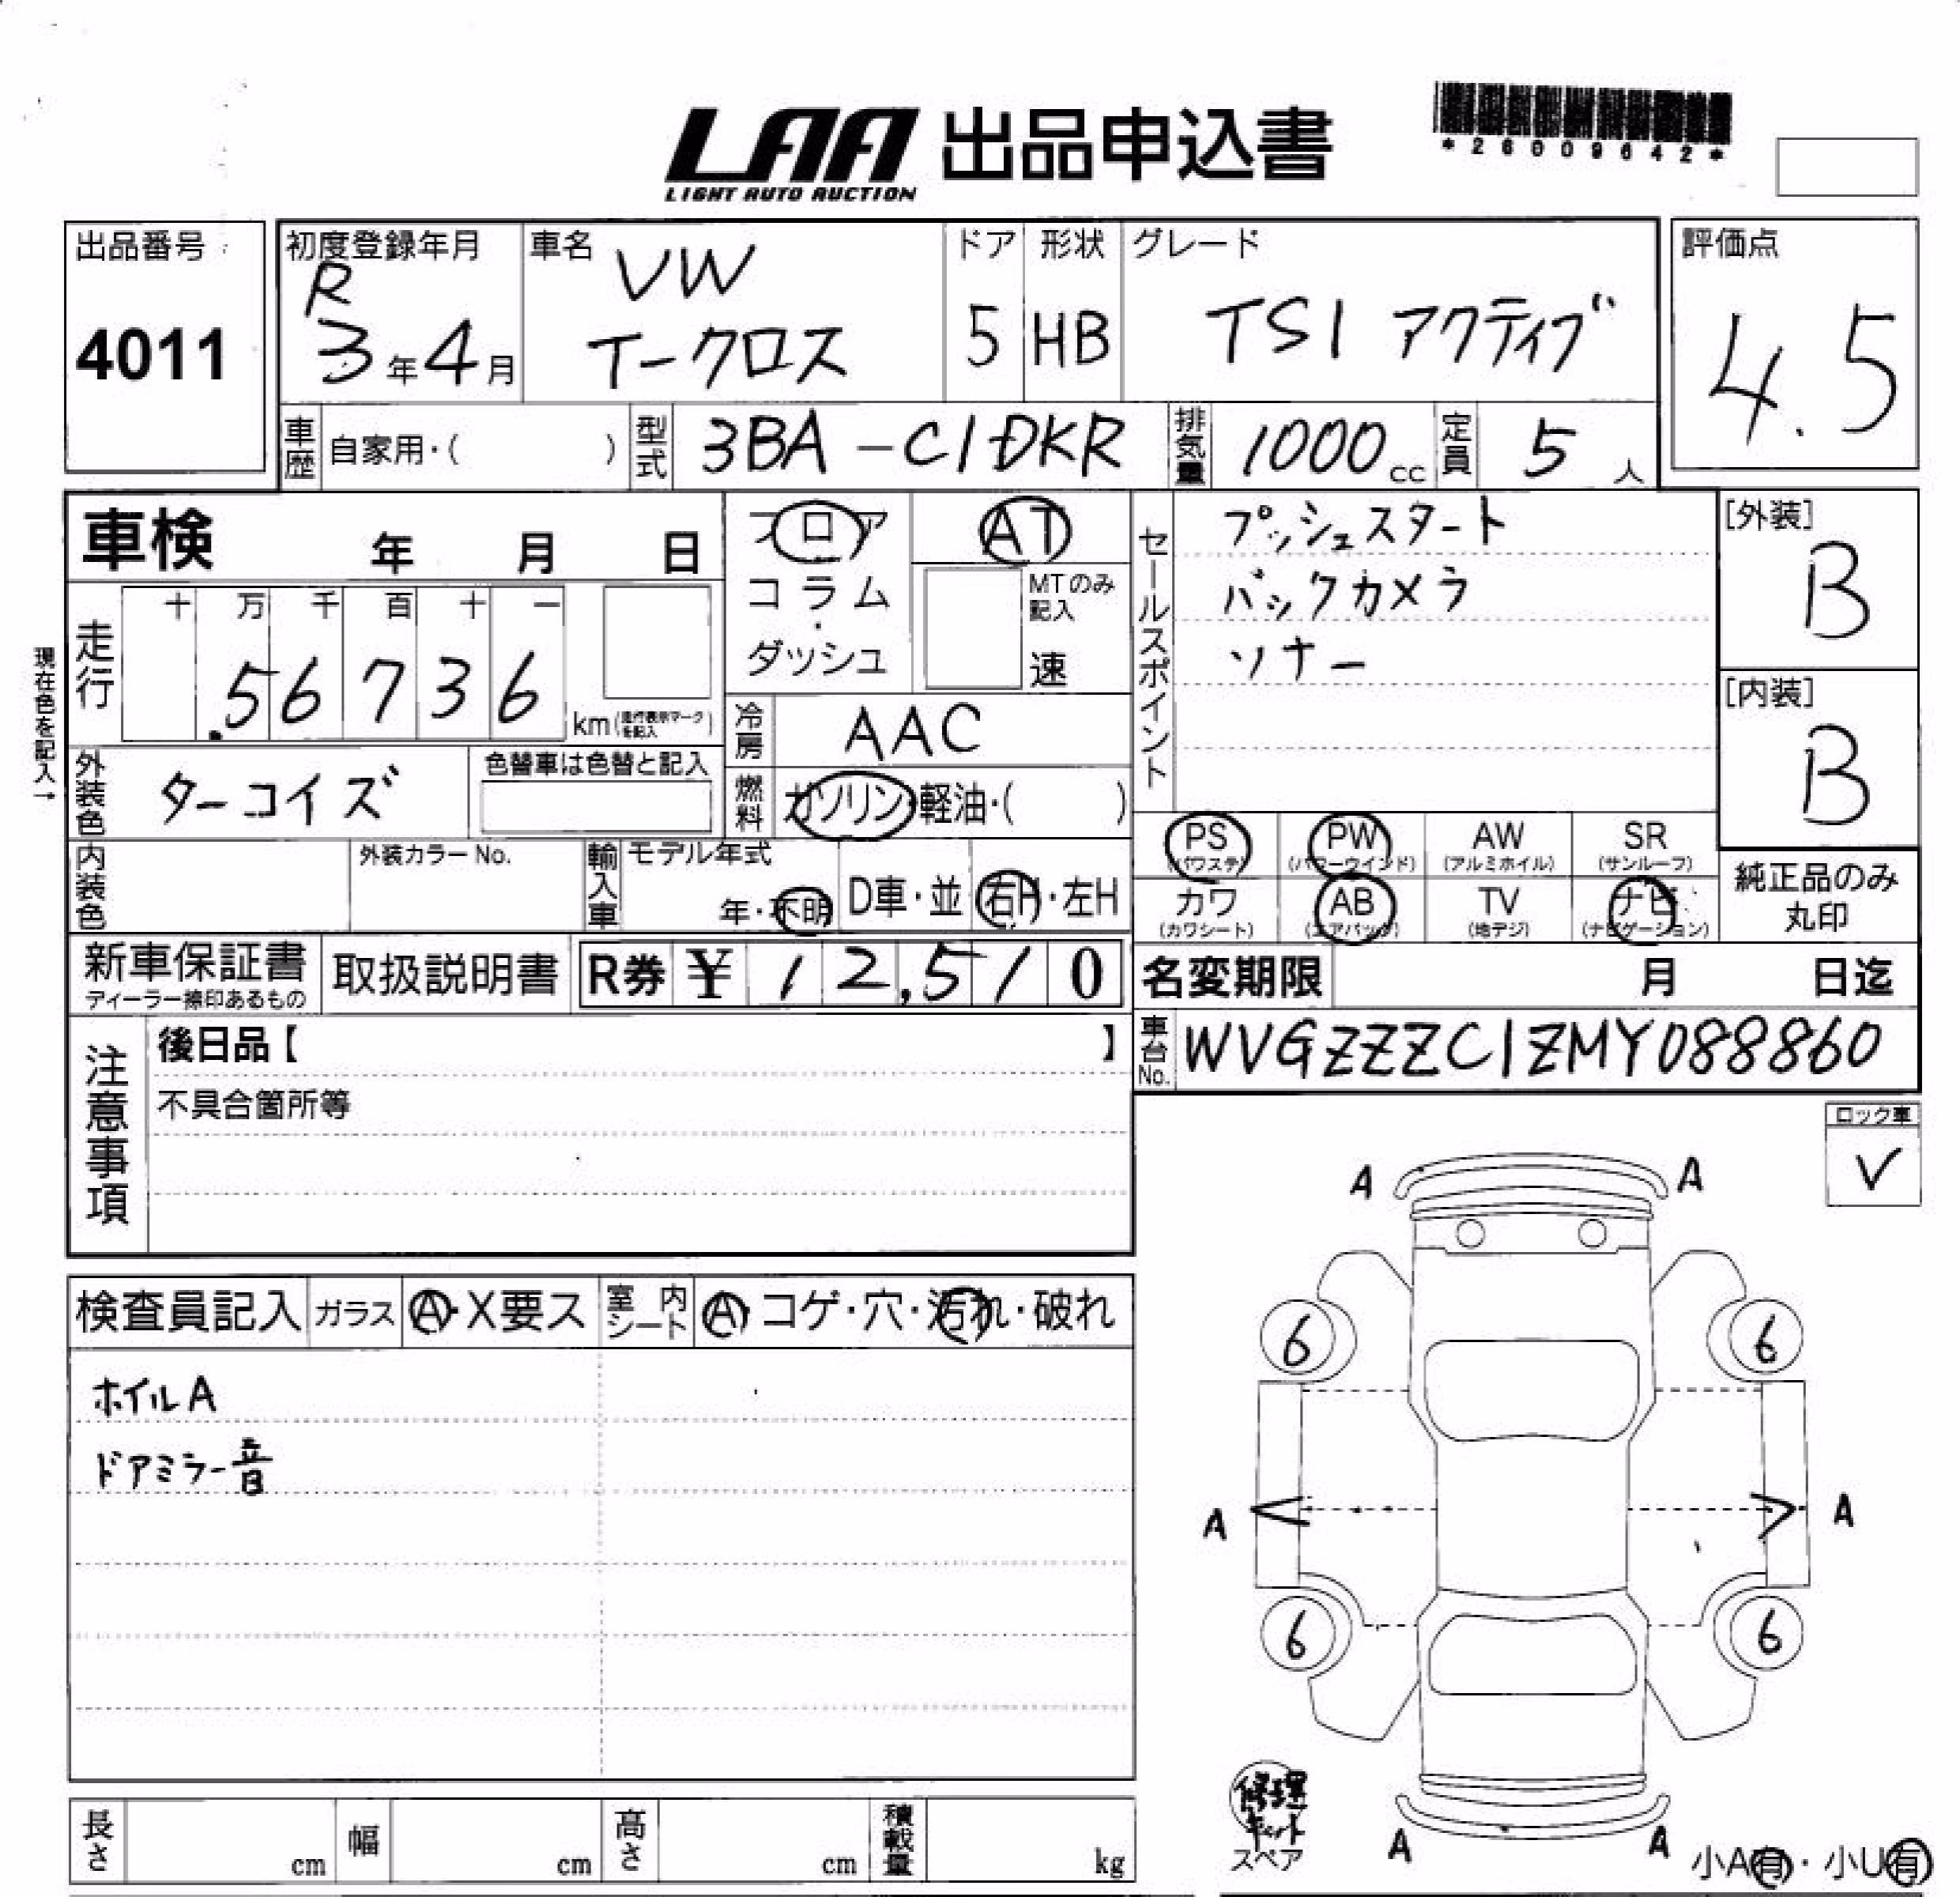 LAA 出品申込書
LIGHT AUTO AUCTION
*26009642*
出品番号
4011
初度登録年月
R
3年4月
車名
VW
T-クロス
ドア
5
形状
HB
グレード
TSI アクティブ
評価点
4.5
車歴
自家用・( )
型式
3BA-C1DKR
排気量
1000cc
定員
5人
車検 年 月 日
フロア
コラム
・
ダッシュ
AT
MTのみ
記入
速
セールスポイント
プッシュスタート
バックカメラ
ソナー
[外装]
B
[内装]
B
現在色を記入→
走行
十 万 千 百 十 一
.56736
km(走行表示マークを記入)
冷房
AAC
外装色
ターコイズ
色替車は色替と記入
燃料
ガソリン・軽油・( )
内装色
外装カラーNo.
輸入車
モデル年式
年・不明
D車・並
右H・左H
PS
(パワステ)
PW
(パワーウインド)
AW
(アルミホイル)
SR
(サンルーフ)
カワ
(カワシート)
AB
(エアバック)
TV
(地デジ)
ナビ
(ナビゲーション)
純正品のみ
丸印
新車保証書
ディーラー捺印あるもの
取扱説明書
R券 ¥12,510
名変期限 月 日迄
車台No.
WVGZZZC1ZMY088860
注意事項
後日品【 】
不具合箇所等
ロック車
✓
検査員記入
ガラス
A・X要ス
室内シート
A・コゲ・穴・汚れ・破れ
ホイルA
ドアミラー音
A A
6 6
A A
6 6
修理
キット
スペア
A A
小A有・小U有
長さ cm
幅 cm
高さ cm
積載量 kg